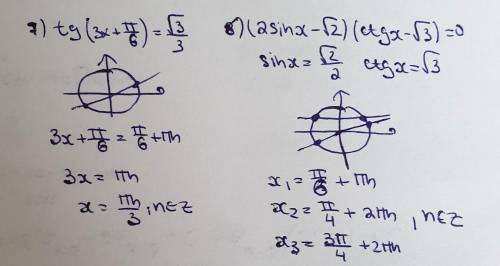 7) tg(3x + π/6) = √3/3
3x + π/6 = π/6 + πn
3x = πn
x = πn/3, n∈Z
8) (2sinx - √2)(ctgx - √3) = 0
sinx = √2/2 ctgx = √3
x₁ = π/6 + πn
x₂ = π/4 + 2πn, n∈Z
x₃ = 3π/4 + 2πn